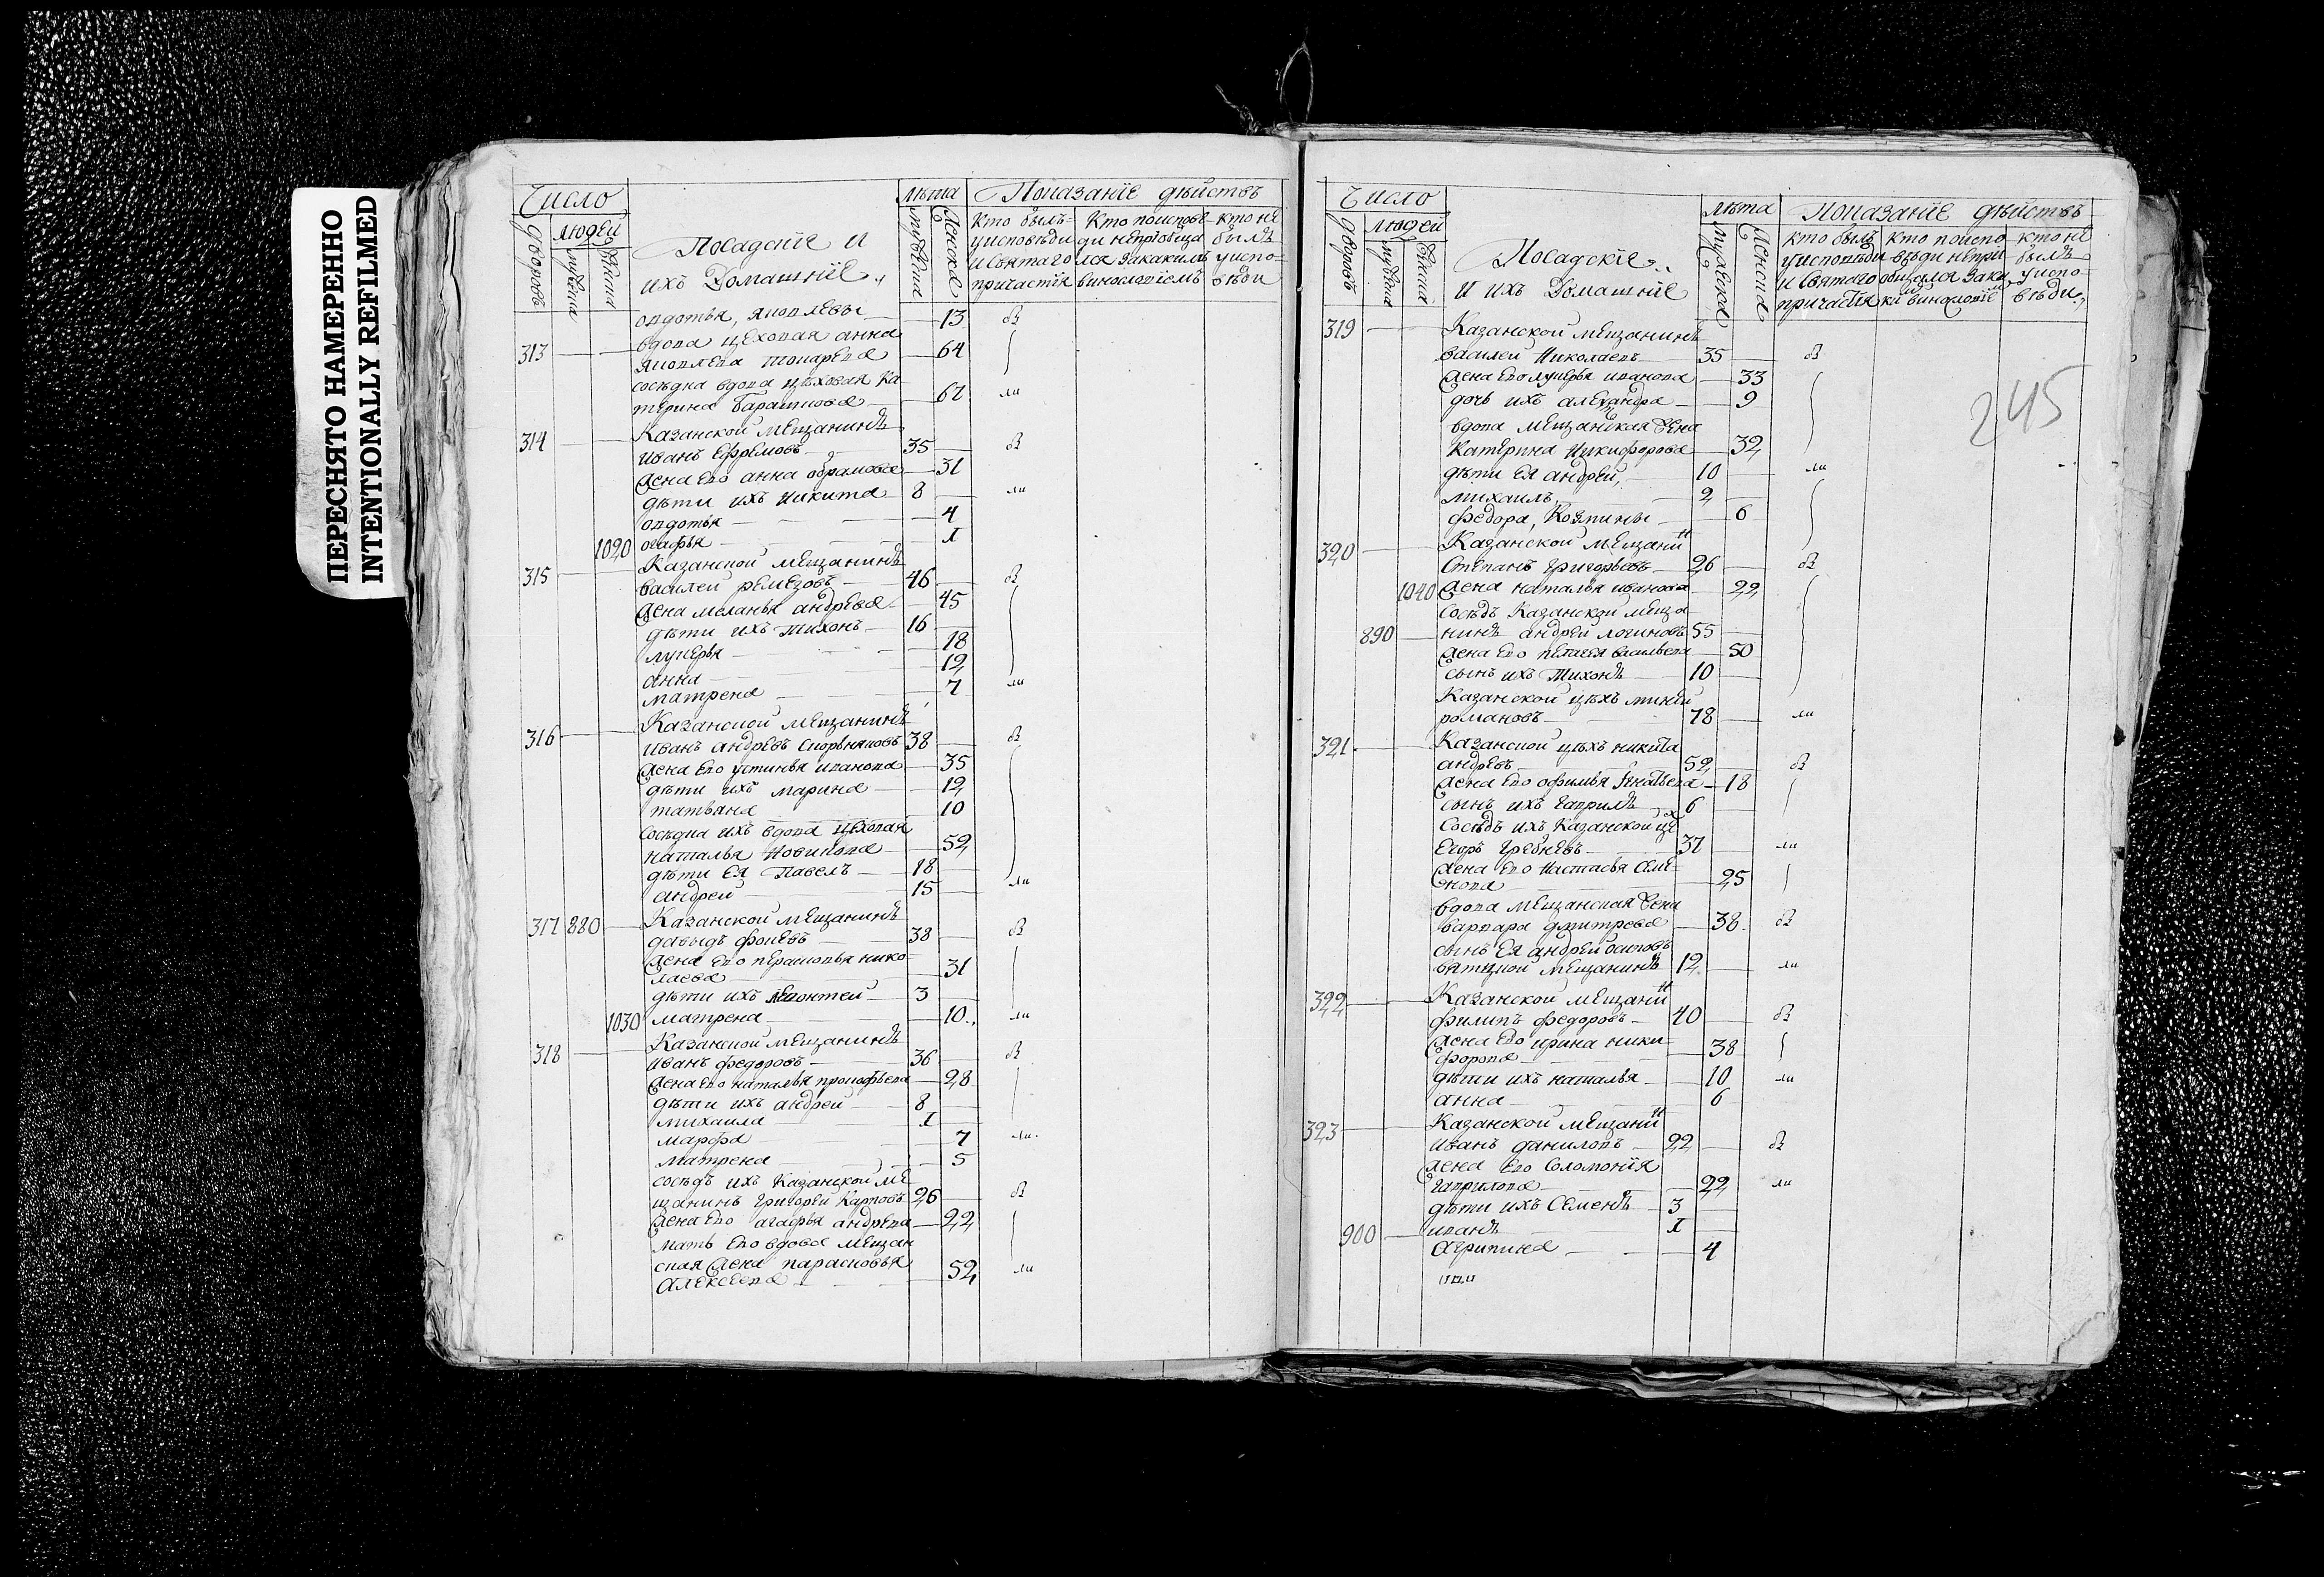 ПЕРЕСНЯТО НАМЕРЕННО
INTENTIONALLY REFILMED
Число
людей
дворовъ
мужска
женска
Посадскїе и
ихъ Домашнїе
лѣта
мужска
женска
Показанїе дѣйствъ
кто былъ Кто поисповѣ кто не
уисповѣди ди непрїобща былъ
и Святаго лся закакимъ уиспо-
причастїя винословїемъ вѣди
овдотья, яковлевы 13 ов
313 вдова цеховая анна
яковлева токарева 64
соседка вдова цеховая ка
терина Барашкова 67 ли
314 Казанской мещанинъ
иванъ Ефремовъ 35 ов
жена его анна обрамова 31
дѣти ихъ никита 8 ли
овдотья 4
1020 огафья 1
315 Казанской мещанинъ
василеи ремезовъ 46 ов
жена меланья андрева 45
дѣти ихъ тихонъ 16
лукерья 18
анна 12
матрена 7 ли
316 Казанской мещанинъ
иванъ андревъ скорняковъ 38 ов
жена его устинья иванова 35
дѣти ихъ марина 12
татьяна 10
соседка ихъ вдова цеховая
наталья новикова 52
дѣти ея Павелъ 18
андреи 15 ли
317 880 Казанской мещанинъ
давыдъ фокевъ 38 ов
жена его парасковья нико
лаева 31
дѣти ихъ леонтеи 3
1030 матрена 10 ли
318 Казанской мещанинъ
иванъ федоровъ 36 ов
жена его наталья прокофьева 28
дѣти ихъ андреи 8
михаила 1
марфа 7 ли
матрена 5
соседъ ихъ Казанской ме
щанинъ григореи Карповъ 26 ов
жена его агафья андрева 22
мать его вдова мещан
ская жена парасковья
алексеева 52 ли
Число
людей
дворовъ
мужска
женска
Посадскїе
И ихъ Домашнїе
лѣта
мужска
женска
Показанїе дѣйствъ
кто былъ кто поиспо кто не
уисповѣди вѣди непри былъ
и Святаго общался заки уиспо-
причастїя вѣди
245
319 Казанской мещанинъ
василеи Николаевъ 35 ов
жена его лукерья иванова 33
дочь ихъ александра 9
вдова мещанская жена
Катерина Никифорова 32
дѣти ея андреи, 10 ли
михаилъ, 2
федора, Козмины 6
320 Казанской мещанин
Степанъ григорьевъ 26 ов
1040 жена наталья иванова 22
Соседъ Казанской меща
890 нинъ андреи логиновъ 55
жена его пелагея васильева 50
сынъ ихъ тихонъ 10
Казанской цехъ
романовъ 78 ли
321 Казанской цехъ никита
андревъ 52 ов
жена его офимья Игнатьева 18
сынъ ихъ гаврилъ 6
Соседъ ихъ Казанской цех
Егоръ гребневъ 37 ли
жена его настасья Семе
нова 25
вдова мещанская жена
варвара дмитрева 38 ов
сынъ Ея андреи осиповъ
вятцкой мещанинъ 12 ли
322 Казанской мещанин
филипъ федоровъ 40 ов
жена его ирина ники
форова 38
дѣти ихъ наталья 10 ли
анна 6
323 Казанской мещанин
иванъ даниловъ 22 ов
жена его Соломонїя
гаврилова 22 ли
дѣти ихъ Семенъ 3
900 иванъ 1
агрипина 4